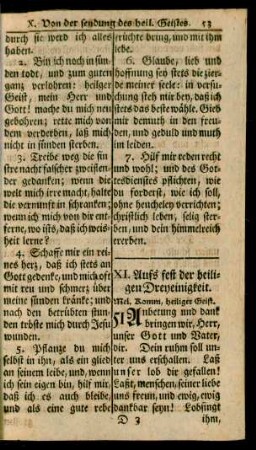 X. Von der sendung des heil. Geistes. 53
durch sie werd ich alles
haben.
2. Bin ich noch in sün-
den todt, und zum guten
ganz verlohren: heilger
Geist, mein Herr und
Gott! mache du mich neu
gebohren; rette mich von
dem verderben, laß mich
nicht in sünden sterben.
3. Treibe weg die fin-
stre nacht falscher zweiflen-
der gedanken; wenn die
welt mich irre macht, halte
die vernunft in schranken;
wenn ich mich von dir ent-
ferne, wo ists, daß ich weis-
heit lerne?
4. Schaffe mir ein rei-
nes herz, daß ich stets an
Gott gedenk, und mich oft
mit reu und schmerz über
meine sünden kränke; und
nach den betrübten stun-
den tröste mich durch Jesu
wunden.
5. Pflanze du mich
selbst in ihn, als ein glied
an seinem leibe, und, wenn
ich sein eigen bin, hilf mir,
daß ich es auch bleibe,
und als eine gute rebe
früchte bring, und mit ihm
lebe.
6. Glaube, lieb und
hoffnung sey stets die zier-
de meiner seele: in versu-
chung steh mir bey, daß ich
stets das beste wähle. Gieb
mir demuth in den freu-
den, und geduld und muth
im leiden.
7. Hilf mir reden recht
und wohl; und des Got-
tesdienstes pflichten, wie
du forderst, wie ich soll,
ohne heucheley verrichten;
christlich leben, selig ster-
ben, und dein himmelreich
ererben.
XI. Aufs fest der heili-
gen Dreyeinigkeit.
Mel. Komm, heiliger Geist.
51 Anbetung und dank
bringen wir, Herr,
unser Gott und Vater,
dir. Dein ruhm soll un-
ter uns erschallen. Laß
unser lob dir gefallen!
Laßt, menschen, seiner liebe
uns freun, und ewig, ewig
dankbar seyn! Lobsingt
D 3 ihm,